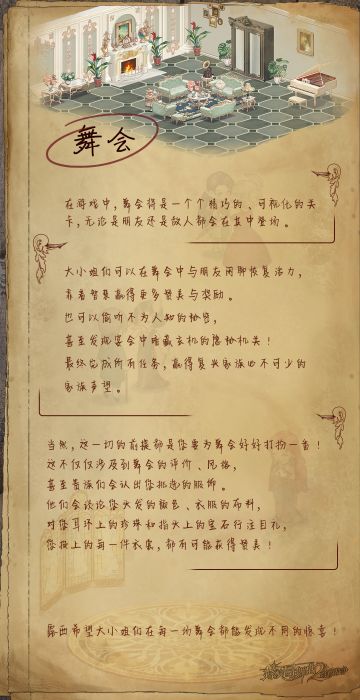 舞会
在游戏中，舞会将是一个个精巧的、可视化的关
卡，无论是朋友还是敌人都会在其中登场。
大小姐们可以在舞会中与朋友闲聊恢复活力，
靠着智慧赢得更多赞美与奖励。
也可以偷听不为人知的秘密，
甚至发现宴会中暗藏玄机的隐秘机关！
最终完成所有任务，赢得复兴家族必不可少的
家族声望。
当然，这一切的前提都是您要为舞会好好打扮一番！
这不仅仅涉及到舞会的评价、风格，
甚至贵族们会认出您挑选的服饰。
他们会谈论您头发的颜色、衣服的布料，
对您耳环上的珍珠和指尖上的宝石行注目礼，
您换上的每一件衣裳，都有可能获得赞美！
露西希望大小姐们在每一场舞会都能发现不同的惊喜！